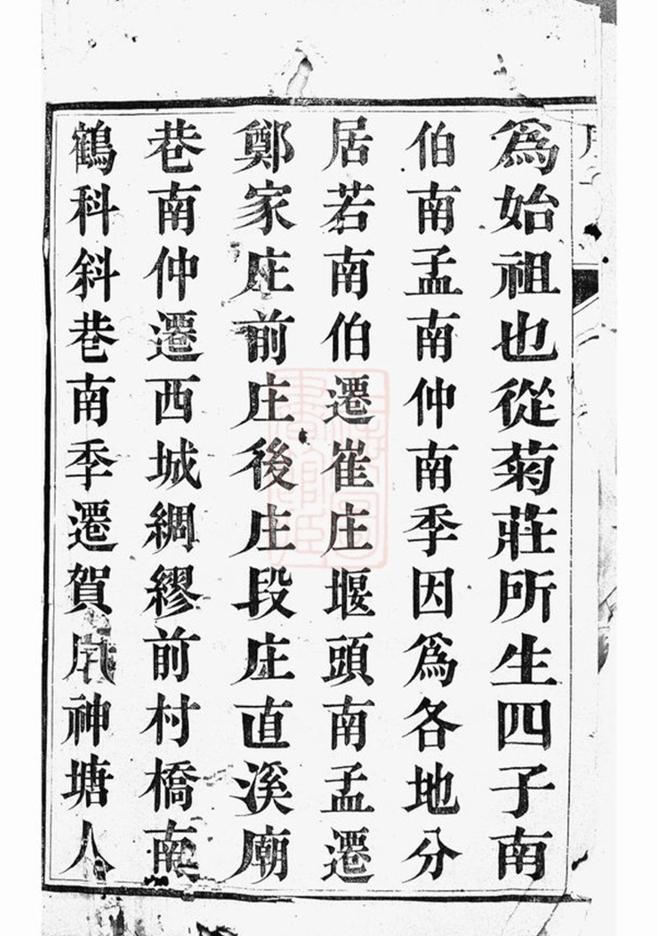 為始祖也從菊莊所生四子南
伯南孟南仲南季因為各地分
居若南伯遷崔庄堰頭南孟遷
鄭家庄前庄後庄段庄直溪廟
巷南仲遷西城綢繆前村橋南
鶴科斜巷南季遷賀神塘人